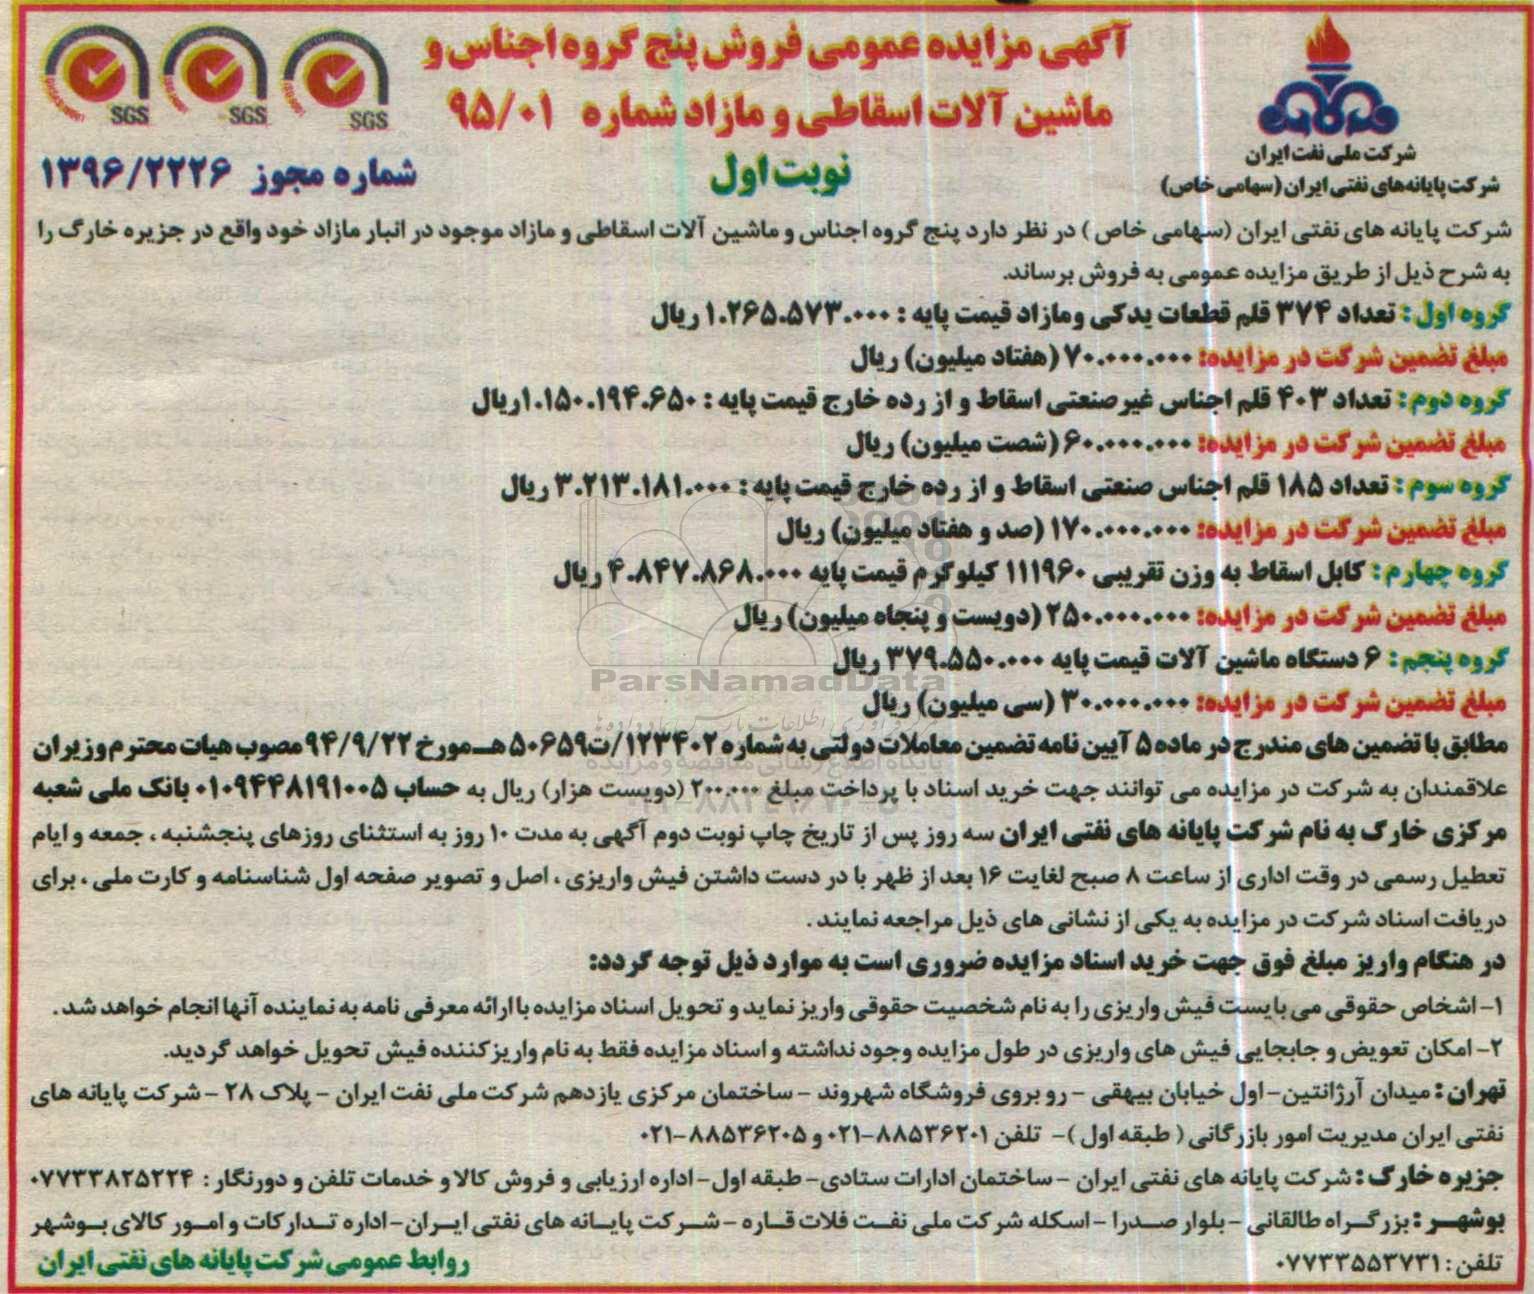 آگهی مزایده عمومی فروش پنج گروه اجناس و
ماشین آلات اسقاطی و مازاد شماره ۹۵/۰۱
نوبت اول
شرکت ملی نفت ایران
شرکت پایانه‌های نفتی ایران (سهامی خاص)
SGS SGS SGS
شماره مجوز ۱۳۹۶/۲۲۲۶
شرکت پایانه های نفتی ایران (سهامی خاص ) در نظر دارد پنج گروه اجناس و ماشین آلات اسقاطی و مازاد موجود در انبار مازاد خود واقع در جزیره خارگ را
به شرح ذیل از طریق مزایده عمومی به فروش برساند.
گروه اول : تعداد ۳۷۴ قلم قطعات یدکی ومازاد قیمت پایه : ۱.۲۶۵.۵۷۳.۰۰۰ ریال
مبلغ تضمین شرکت در مزایده: ۷۰.۰۰۰.۰۰۰ (هفتاد میلیون) ریال
گروه دوم : تعداد ۴۰۳ قلم اجناس غیرصنعتی اسقاط و از رده خارج قیمت پایه : ۱.۱۵۰.۱۹۴.۶۵۰ریال
مبلغ تضمین شرکت در مزایده: ۶۰.۰۰۰.۰۰۰ (شصت میلیون) ریال
گروه سوم : تعداد ۱۸۵ قلم اجناس صنعتی اسقاط و از رده خارج قیمت پایه : ۳.۲۱۳.۱۸۱.۰۰۰ ریال
مبلغ تضمین شرکت در مزایده: ۱۷۰.۰۰۰.۰۰۰ (صد و هفتاد میلیون) ریال
گروه چهارم : کابل اسقاط به وزن تقریبی ۱۱۱۹۶۰ کیلوگرم قیمت پایه ۴.۸۴۷.۸۶۸.۰۰۰ ریال
مبلغ تضمین شرکت در مزایده: ۲۵۰.۰۰۰.۰۰۰ (دویست و پنجاه میلیون) ریال
گروه پنجم : ۶ دستگاه ماشین آلات قیمت پایه ۳۷۹.۵۵۰.۰۰۰ ریال
ParsNamadData
مبلغ تضمین شرکت در مزایده: ۳۰.۰۰۰.۰۰۰ (سی میلیون) ریال
مطابق با تضمین های مندرج در ماده ۵ آیین نامه تضمین معاملات دولتی به شماره ۱۲۳۴۰۲/ت۵۰۶۵۹ هـ مورخ ۹۴/۹/۲۲ مصوب هیات محترم وزیران
علاقمندان به شرکت در مزایده می توانند جهت خرید اسناد با پرداخت مبلغ ۲۰۰.۰۰۰ (دویست هزار) ریال به حساب ۰۱۰۹۴۴۸۱۹۱۰۰۵ بانک ملی شعبه
مرکزی خارگ به نام شرکت پایانه های نفتی ایران سه روز پس از تاریخ چاپ نوبت دوم آگهی به مدت ۱۰ روز به استثنای روزهای پنجشنبه ، جمعه و ایام
تعطیل رسمی در وقت اداری از ساعت ۸ صبح لغایت ۱۶ بعد از ظهر با در دست داشتن فیش واریزی ، اصل و تصویر صفحه اول شناسنامه و کارت ملی ، برای
دریافت اسناد شرکت در مزایده به یکی از نشانی های ذیل مراجعه نمایند .
در هنگام واریز مبلغ فوق جهت خرید اسناد مزایده ضروری است به موارد ذیل توجه گردد:
۱- اشخاص حقوقی می بایست فیش واریزی را به نام شخصیت حقوقی واریز نماید و تحویل اسناد مزایده با ارائه معرفی نامه به نماینده آنها انجام خواهد شد .
۲- امکان تعویض و جابجایی فیش های واریزی در طول مزایده وجود نداشته و اسناد مزایده فقط به نام واریزکننده فیش تحویل خواهد گردید.
تهران : میدان آرژانتین- اول خیابان بیهقی - رو بروی فروشگاه شهروند - ساختمان مرکزی یازدهم شرکت ملی نفت ایران - پلاک ۲۸ - شرکت پایانه های
نفتی ایران مدیریت امور بازرگانی ( طبقه اول )- تلفن ۸۸۵۳۶۲۰۱-۰۲۱ و ۸۸۵۳۶۲۰۵-۰۲۱
جزیره خارگ : شرکت پایانه های نفتی ایران - ساختمان ادارات ستادی- طبقه اول- اداره ارزیابی و فروش کالا و خدمات تلفن و دورنگار : ۰۷۷۳۳۸۲۵۲۲۴
بوشهر : بزرگراه طالقانی - بلوار صدرا - اسکله شرکت ملی نفت فلات قاره - شرکت پایانه های نفتی ایران- اداره تدارکات و امور کالای بوشهر
تلفن : ۰۷۷۳۳۵۵۳۷۳۱
روابط عمومی شرکت پایانه های نفتی ایران